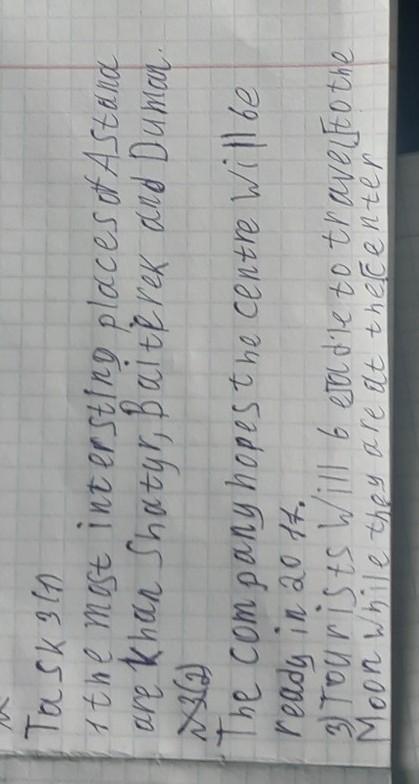 Task 3(1)
1 the most intersting places of Astana
are Khan Shatyr, Baiterek and Duman.
№3(2)
The company hopes the centre will be
ready in 2017.
3) Tourists will be able to travel to the
Moon while they are at the center